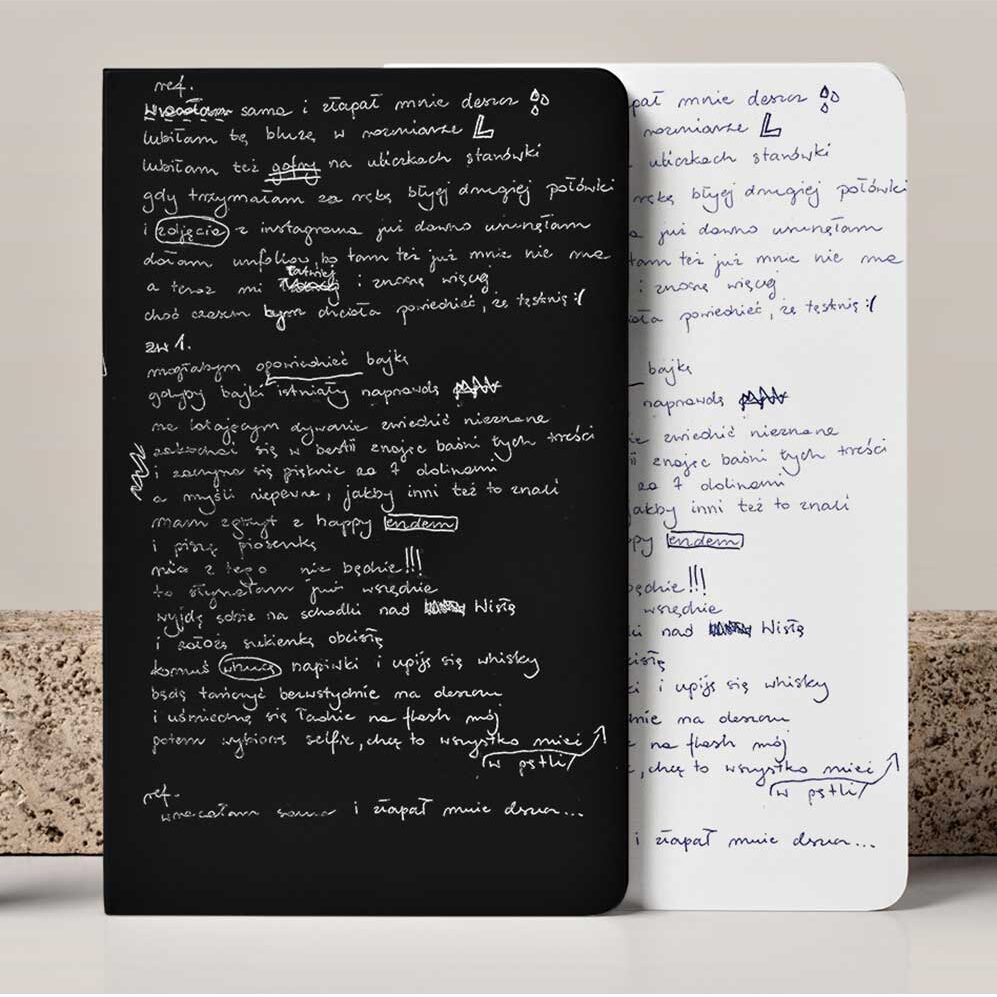 ref.
wracałam sama i złapał mnie deszcz
lubiłam tę bluzę w rozmiarze L
lubiłam też gofry na uliczkach starówki
gdy trzymałam za rękę byłej drugiej połówki
i zdjęcia z instagrama już dawno usunęłam
dałam unfollow, bo tam też już mnie nie ma
a teraz mi łatwiej i znoszę więcej
choć czasem bym chciała powiedzieć, że tęsknię :(
zw 1.
mogłabym opowiedzieć bajkę
gdyby bajki istniały naprawdę
na latającym dywanie zwiedzić nieznane
zakochać się w bestii znając baśni tych treści
i zaczyna się pięknie za 7 dolinami
a myśli niepewne, jakby inni też to znali
mam zgrzyt z happy endem
i piszę piosenkę
nic z tego nie będzie!!!
to słyszałam już wszędzie
wyjdę sobie na schodki nad Wisłę
i założę sukienkę obcisłą
komuś wrzucę napiwki i upiję się whisky
będę tańczyć bezwstydnie na deszczu
i uśmiechnę się ładnie na flash mój
potem wybiorę selfie, chcę to wszystko mieć
w pętli
ref.
wracałam sama i złapał mnie deszcz...
pał mnie deszcz
rozmiarze L
uliczkach starówki
rękę byłej drugiej połówki
a już dawno usunęłam
tam też już mnie nie ma
i znoszę więcej
ciała powiedzieć, że tęsknię :(
bajkę
naprawdę
ie zwiedzić nieznane
ii znając baśni tych treści
za 7 dolinami
jakby inni też to znali
py endem
będzie!!!
wszędzie
ki nad Wisłę
cisłą
i i upiję się whisky
nie na deszczu
e na flash mój
, chcę to wszystko mieć
w pętli
i złapał mnie deszcz...